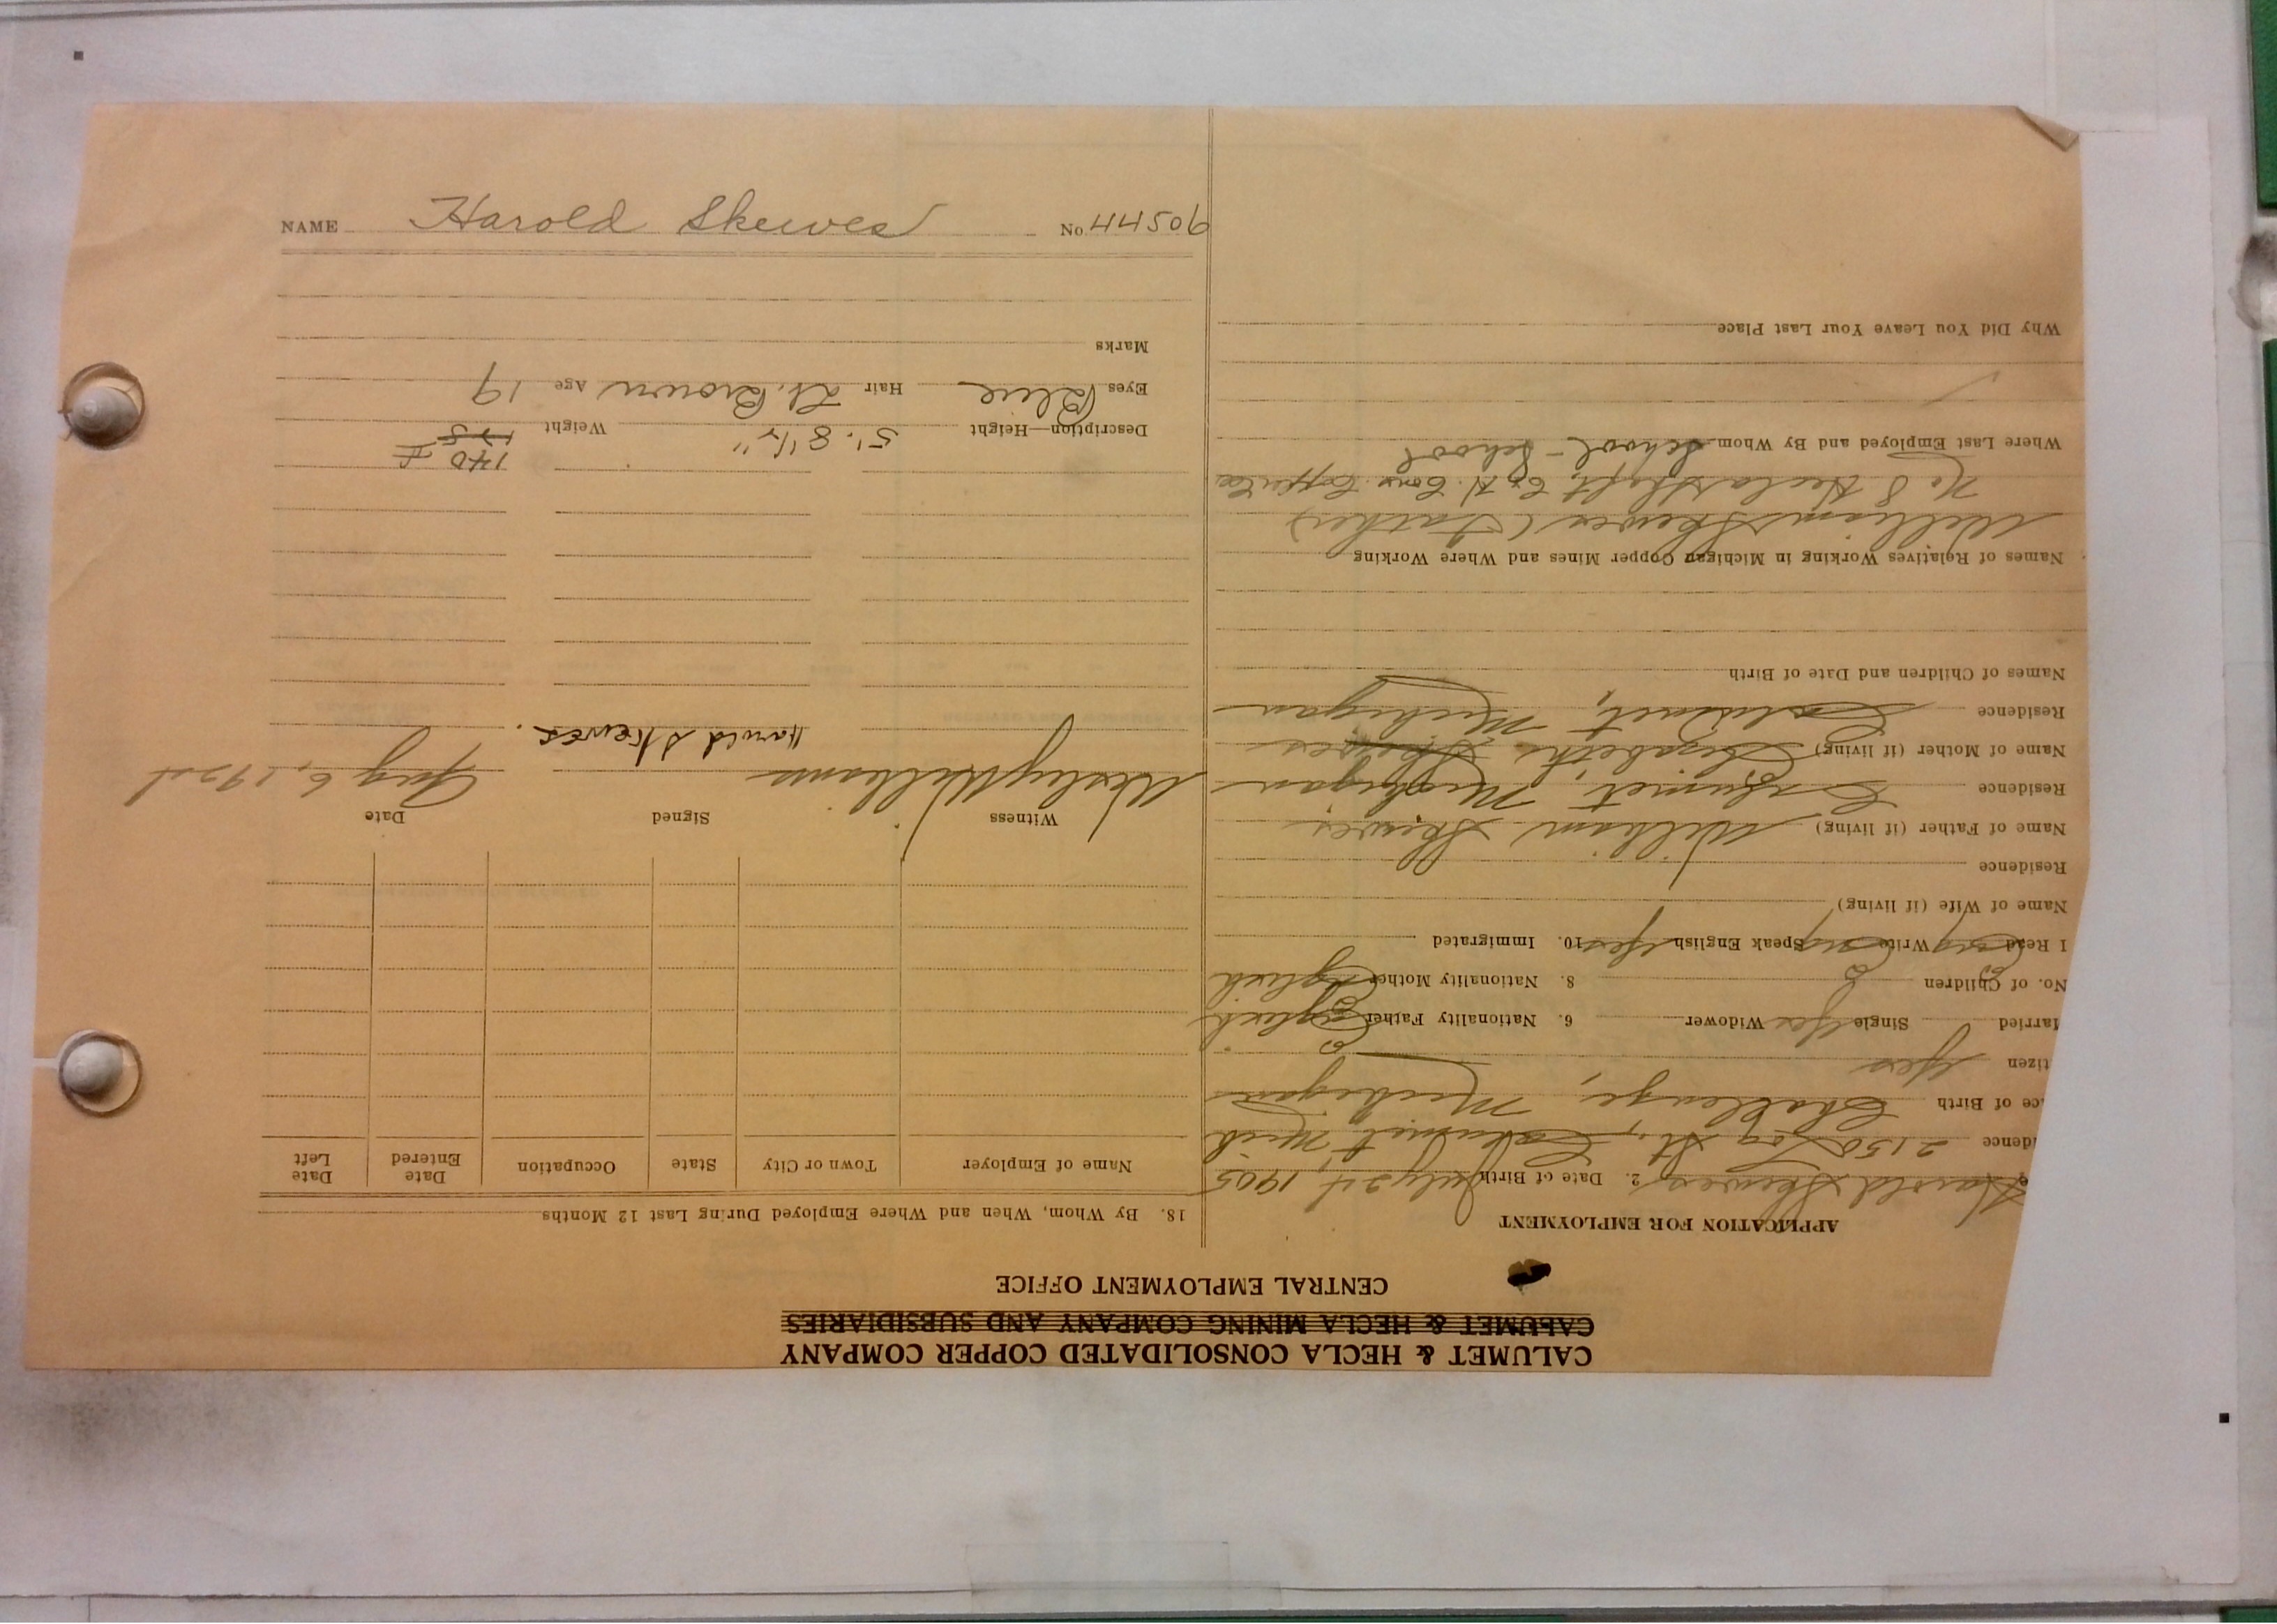 CALUMET & HECLA CONSOLIDATED COPPER COMPANY
CALUMET & HECLA MINING COMPANY AND SUBSIDIARIES
CENTRAL EMPLOYMENT OFFICE
APPLICATION FOR EMPLOYMENT
e Harold Skewes 2. Date of Birth July 24, 1905
dence 2150 Log St., Calumet, Mich
ce of Birth Challenge, Michigan
tizen Yes
arried Single Yes Widower 6. Nationality Father English
No. of Children 0 8. Nationality Mother English
1 Read Write Speak English Yes 10. Immigrated
Name of Wife (if living)
Residence
Name of Father (if living) William Skewes
Residence Calumet, Michigan
Name of Mother (if living) Elizabeth Skewes
Residence Calumet, Michigan
Names of Children and Date of Birth
Names of Relatives Working in Michigan Copper Mines and Where Working
William Skewes (Father)
No 8 Hecla Shaft, C. & H. Cons. Copper Co
Where Last Employed and By Whom School - School
Why Did You Leave Your Last Place
18. By Whom, When and Where Employed During Last 12 Months
Name of Employer Town or City State Occupation Date Entered Date Left
Witness Signed Date
Wesley Williams Harold Skewes. Aug 6, 1924
140 #
Description—Height 5'. 8 1/2" Weight 125
Eyes Blue Hair Lt. Brown Age 19
Marks
NAME Harold Skewes No 44506